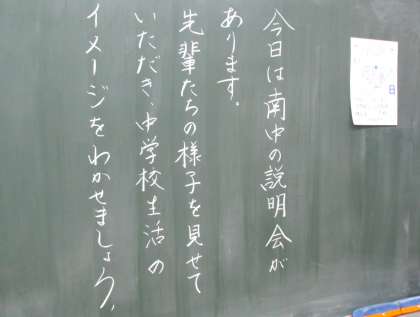 今日は南中の説明会が
あります。
先輩たちの様子を見せて
いただき、中学校生活の
イメージをわかせましょう、